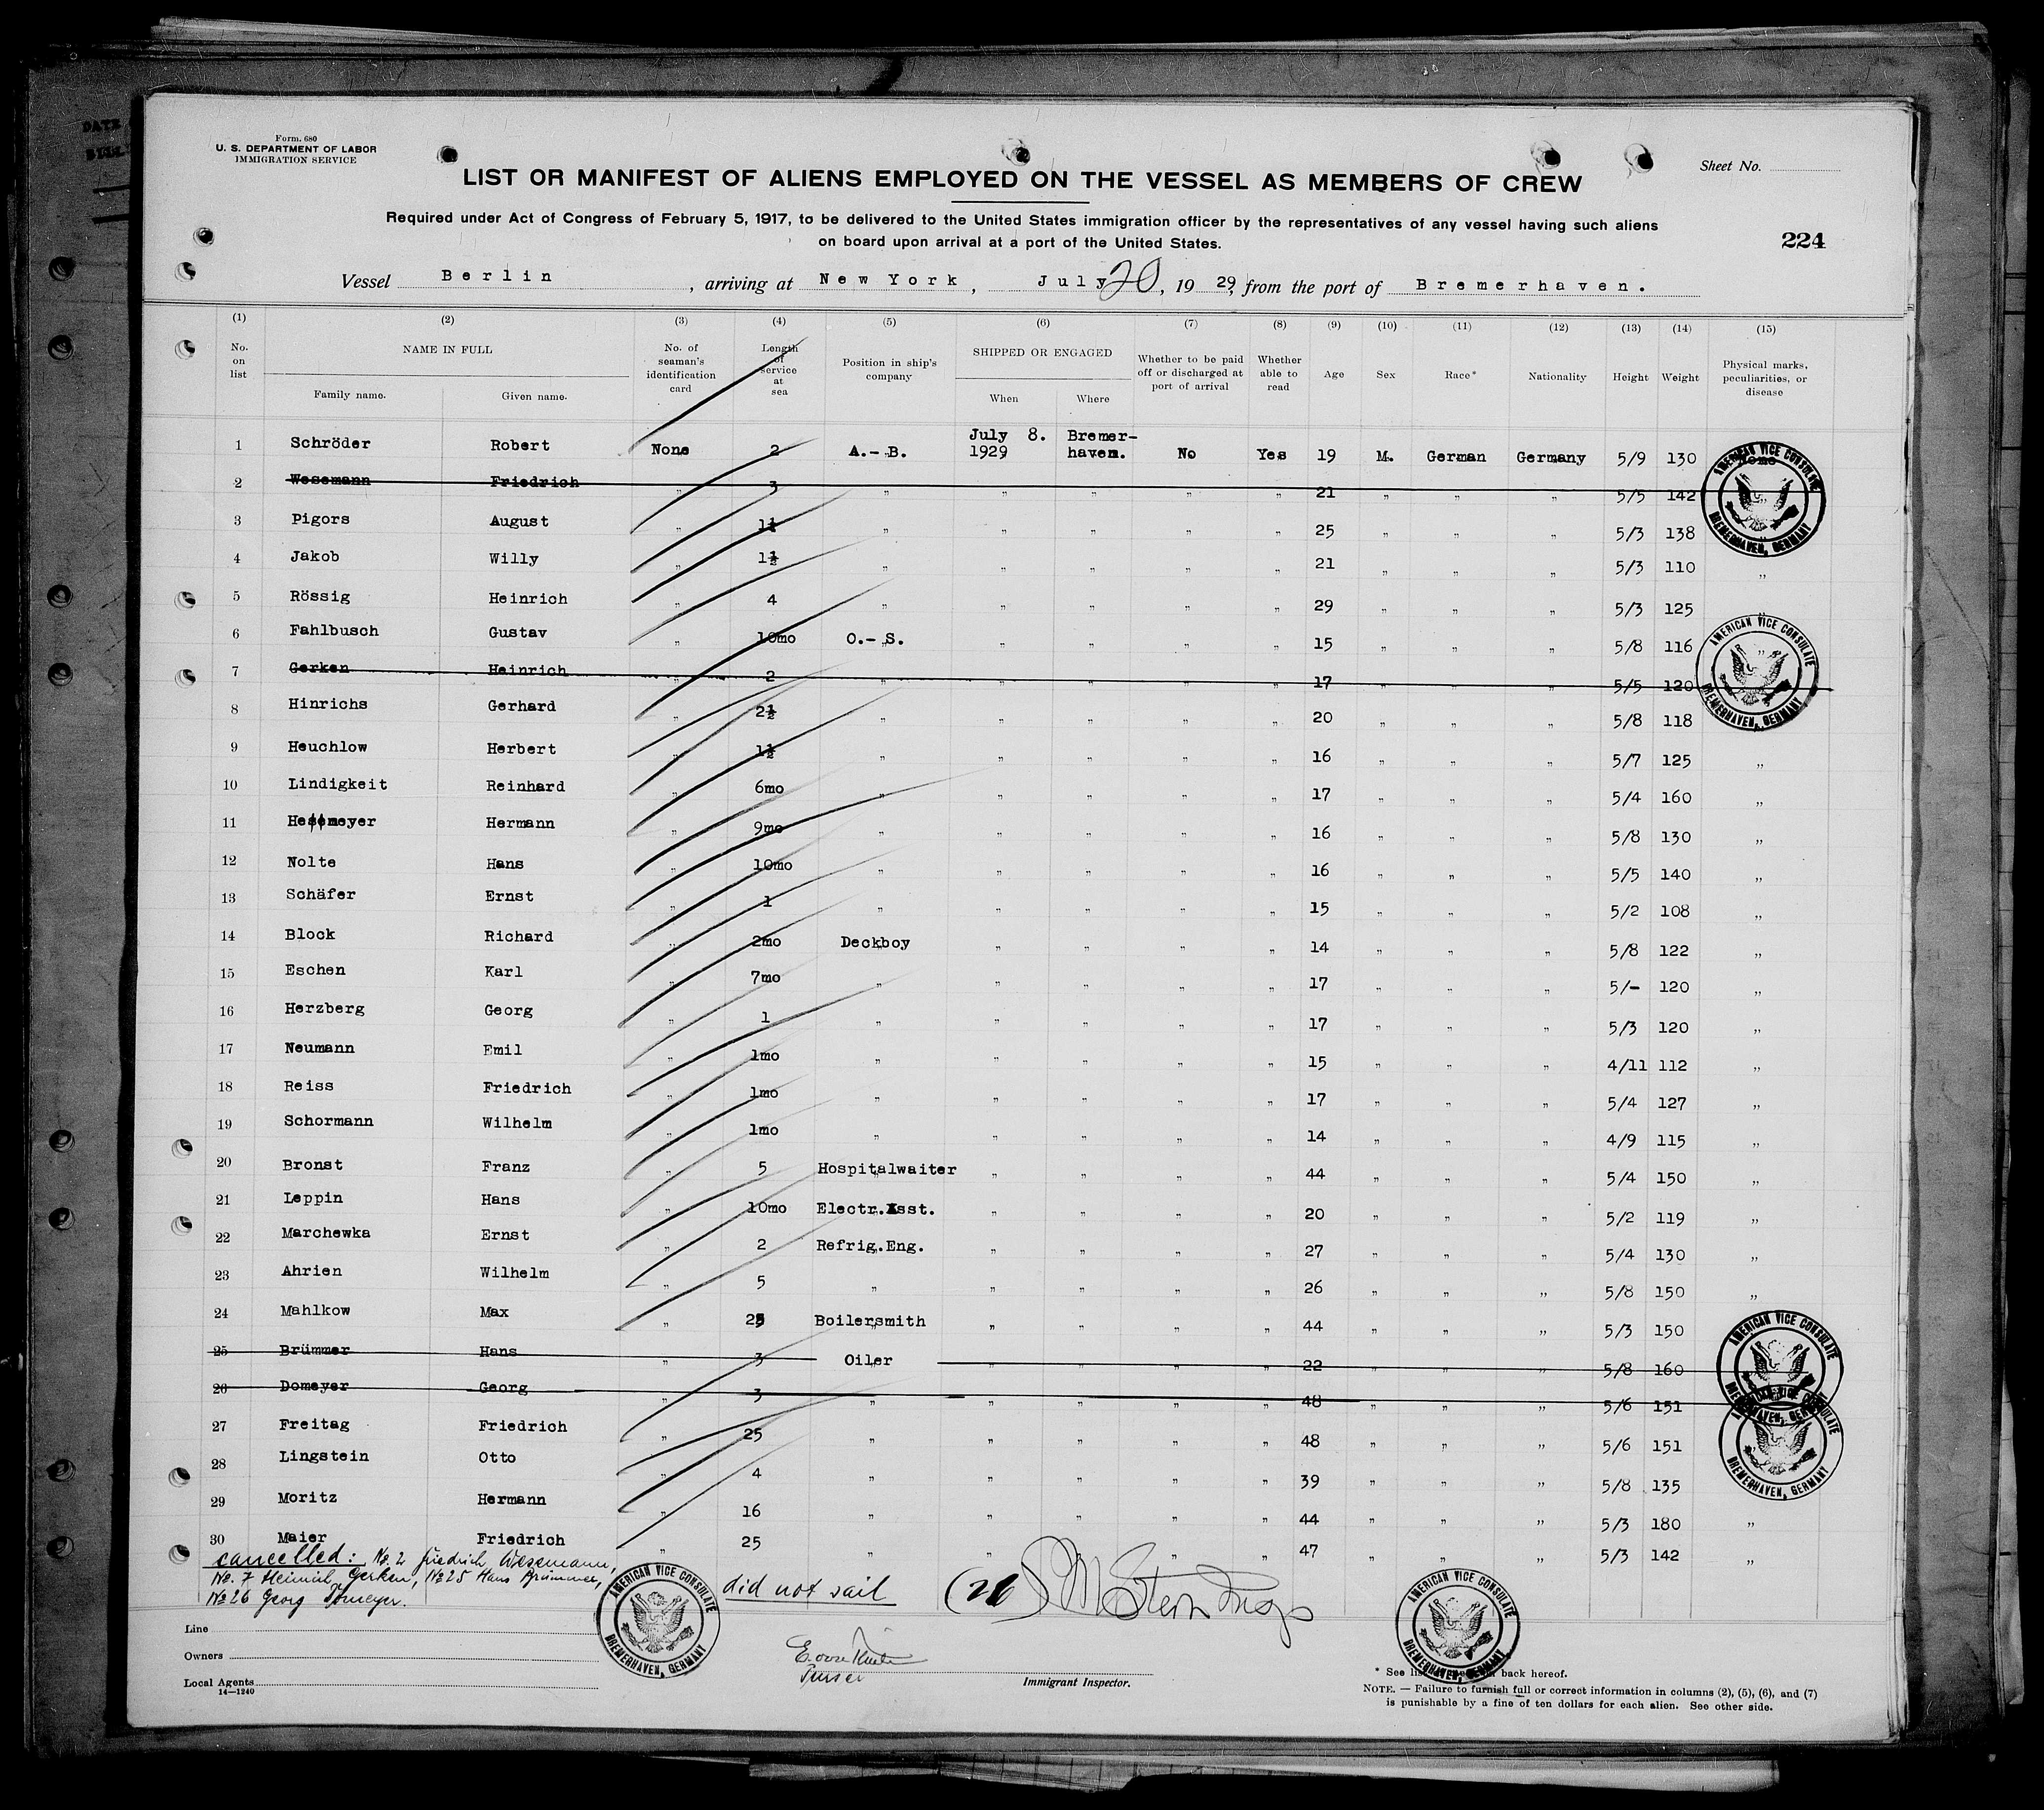 Form 680
U. S. DEPARTMENT OF LABOR
IMMIGRATION SERVICE
Sheet No.
LIST OR MANIFEST OF ALIENS EMPLOYED ON THE VESSEL AS MEMBERS OF CREW
Required under Act of Congress of February 5, 1917, to be delivered to the United States immigration officer by the representatives of any vessel having such aliens
on board upon arrival at a port of the United States.
224
Vessel Berlin, arriving at New York, July 20, 1929, from the port of Bremerhaven.
(1) (2) (3) (4) (5) (6) (7) (8) (9) (10) (11) (12) (13) (14) (15)
No. on list NAME IN FULL Family name. Given name. No. of seaman's identification card Length of service at sea Position in ship's company SHIPPED OR ENGAGED When Where Whether to be paid off or discharged at port of arrival Whether able to read Age Sex Race* Nationality Height Weight Physical marks, peculiarities, or disease
1 Schröder Robert None 2 A.-B. July 8. 1929 Bremer-haven. No Yes 19 M. German Germany 5/9 130 None
2 Wesemann Friedrich " 3 " " " " " 21 " " " 5/5 142 "
3 Pigors August " 1½ " " " " " 25 " " " 5/3 138 "
4 Jakob Willy " 1½ " " " " " 21 " " " 5/3 110 "
5 Rössig Heinrich " 4 " " " " " 29 " " " 5/3 125 "
6 Fahlbusch Gustav " 10mo O.-S. " " " " 15 " " " 5/8 116 "
7 Gerken Heinrich " 2 " " " " " 17 " " " 5/5 120
8 Hinrichs Gerhard " 2½ " " " " " 20 " " " 5/8 118
9 Heuchlow Herbert " 1½ " " " " " 16 " " " 5/7 125 "
10 Lindigkeit Reinhard " 6mo " " " " " 17 " " " 5/4 160 "
11 Hesemeyer Hermann " 9mo " " " " " 16 " " " 5/8 130 "
12 Nolte Hans " 10mo " " " " " 16 " " " 5/5 140 "
13 Schäfer Ernst " 1 " " " " " 15 " " " 5/2 108 "
14 Block Richard " 2mo Deckboy " " " " 14 " " " 5/8 122 "
15 Eschen Karl " 7mo " " " " " 17 " " " 5/- 120 "
16 Herzberg Georg " 1 " " " " " 17 " " " 5/3 120 "
17 Neumann Emil " 1mo " " " " " 15 " " " 4/11 112 "
18 Reiss Friedrich " 1mo " " " " " 17 " " " 5/4 127 "
19 Schormann Wilhelm " 1mo " " " " " 14 " " " 4/9 115 "
20 Bronst Franz " 5 Hospitalwaiter " " " " 44 " " " 5/4 150 "
21 Leppin Hans " 10mo Electr.Asst. " " " " 20 " " " 5/2 119 "
22 Marchewka Ernst " 2 Refrig.Eng. " " " " 27 " " " 5/4 130 "
23 Ahrien Wilhelm " 5 " " " " " 26 " " " 5/8 150 "
24 Mahlkow Max " 25 Boilersmith " " " " 44 " " " 5/3 150
25 Brümmer Hans " 3 Oiler " " " " 22 " " " 5/8 160
26 Domeyer Georg " 3 " " " " " 48 " " " 5/6 151
27 Freitag Friedrich " 25 " " " " " 48 " " " 5/6 151
28 Lingstein Otto " 4 " " " " " 39 " " " 5/8 135
29 Moritz Hermann " 16 " " " " " 44 " " " 5/3 180 "
30 Maier Friedrich " 25 " " " " " 47 " " " 5/3 142 "
AMERICAN VICE CONSULATE BREMERHAVEN, GERMANY
AMERICAN VICE CONSULATE BREMERHAVEN, GERMANY
AMERICAN VICE CONSULATE BREMERHAVEN, GERMANY
AMERICAN VICE CONSULATE BREMERHAVEN, GERMANY
cancelled: No. 2 Friedrich Wesemann,
No. 7 Heinrich Gerken, No 25 Hans Brümmer,
No 26 Georg Domeyer.
AMERICAN VICE CONSULATE BREMERHAVEN, GERMANY
did not sail (26)
AMERICAN VICE CONSULATE BREMERHAVEN, GERMANY
Line
Owners
Local Agents
14—1240
Purser
Immigrant Inspector.
* See list back hereof.
NOTE. — Failure to furnish full or correct information in columns (2), (5), (6), and (7)
is punishable by a fine of ten dollars for each alien. See other side.